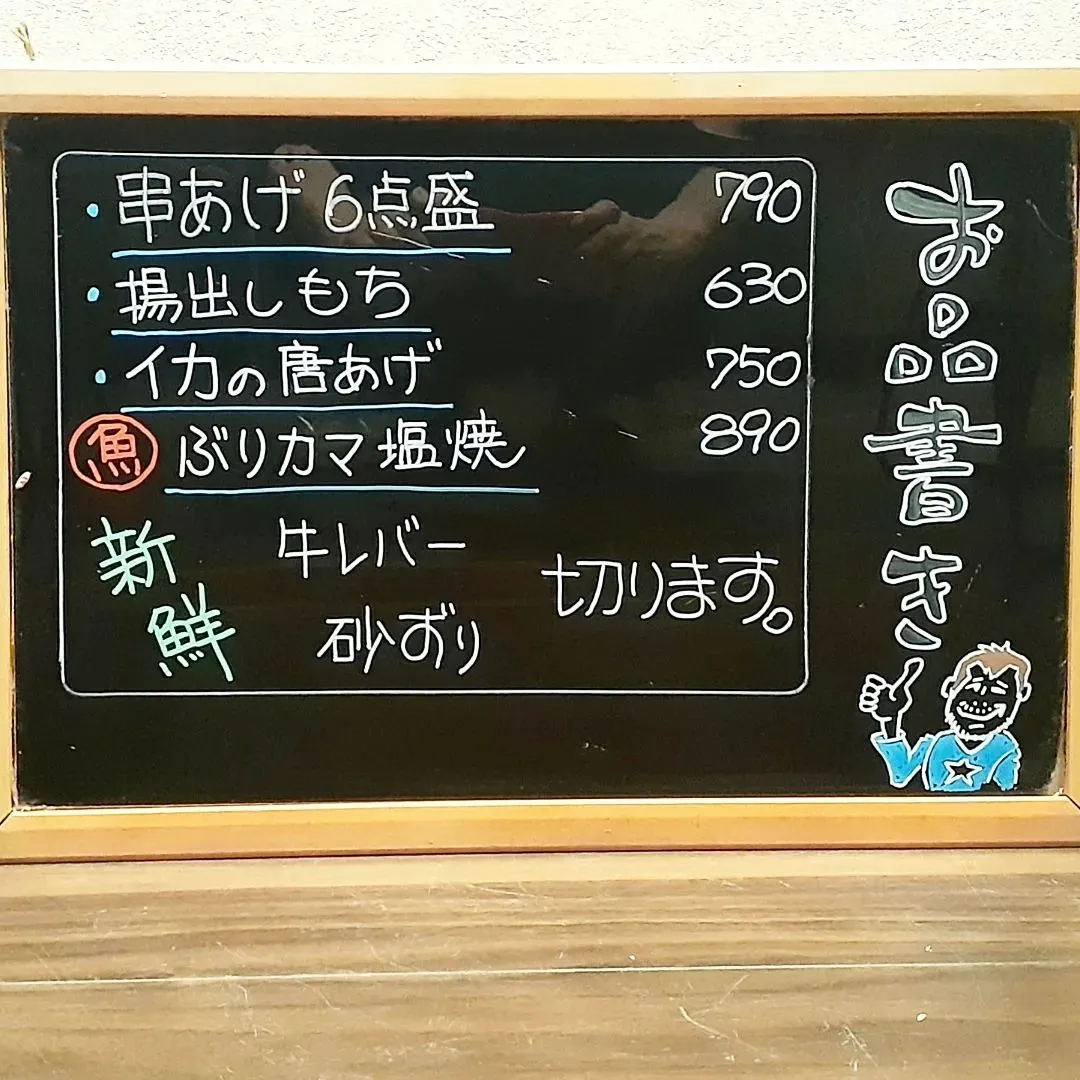 お品書き
・串あげ 6点盛 790
・揚出しもち 630
・イカの唐あげ 750
魚 ぶりカマ塩焼 890
新鮮
牛レバー
砂ずり
切ります。